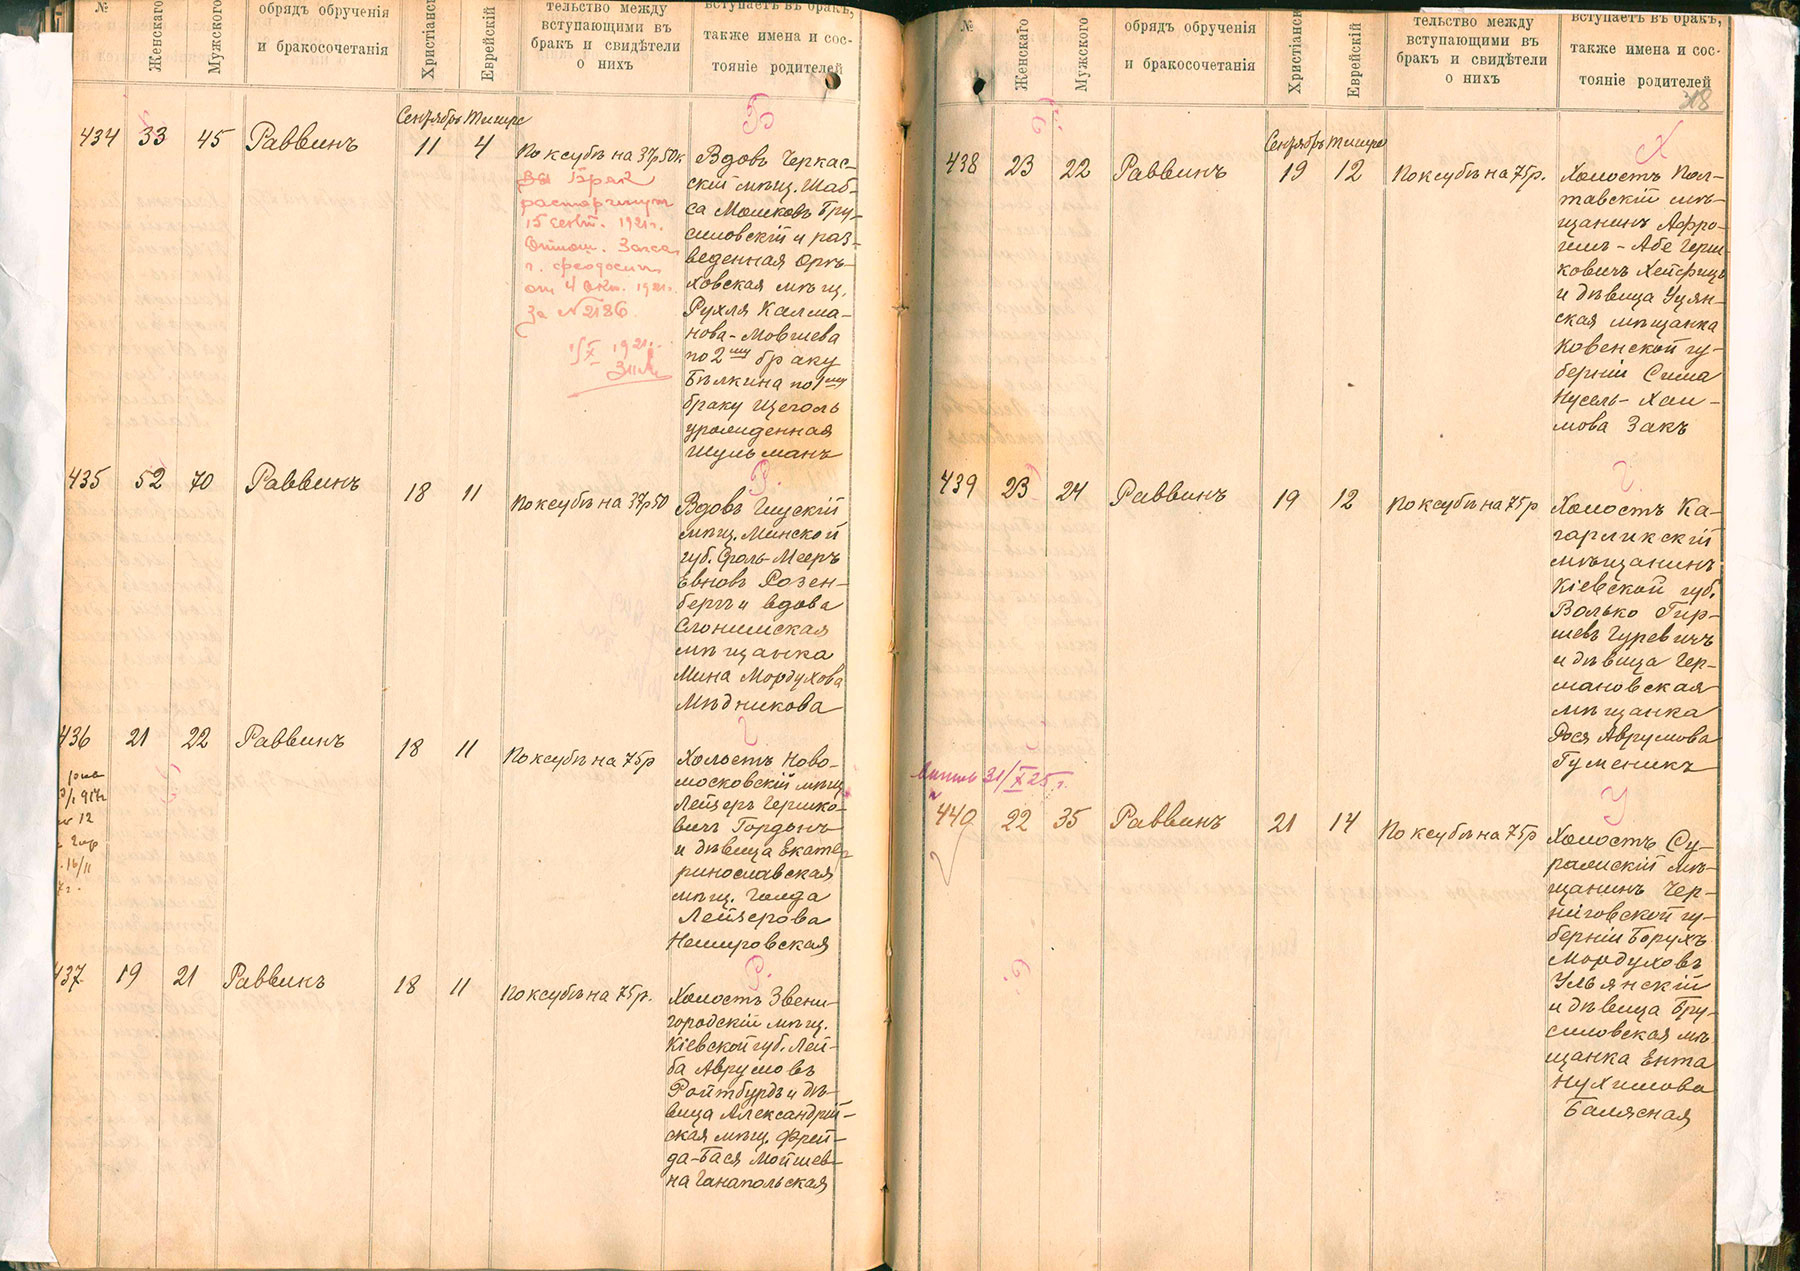 №
Женскаго
Мужского
обрядъ обрученія
и бракосочетанія
Христіанс
Еврейскій
тельство между
вступающими въ
бракъ и свидѣтели
о нихъ
вступаетъ въ бракъ,
также имена и сос-
тояніе родителей
Б
Сентябрь Тишре
434 33 45 Раввинъ 11 4 По ксубѣ на 37р50к
Вдовъ Черкас-
скій мѣщ. Шаб-
са Мошковъ Бру-
силовскій и раз-
веденная Орѣ-
ховская мѣщ.
Рухля Калма-
нова-Мовшева
по 2му браку
Бѣлкина по 1му
браку Щеголь
урожденная
Шульманъ
Брак
расторгнут
15 сент. 1921г.
Отнош. Загса
г. Феодосии
от 4 Окт. 1921г.
за №2186
1921г.
Р.
435 52 70 Раввинъ 18 11 По ксубѣ на 37р50
Вдовъ
мѣщ. Минской
губ. Сроль-Мееръ
Евновъ Розен-
бергъ и вдова
Слонимская
мѣщанка
Мина Мордухова
Мѣдникова
Г
436 21 22 Раввинъ 18 11 По ксубѣ на 75р
Холостъ Ново-
московскій мѣщ.
Лейзеръ Гершко-
вичъ Гордонъ
и дѣвица Екате-
ринославская
мѣщ. Голда
Лейзерова
Немировская
№ 12
16/II
Р.
437 19 21 Раввинъ 18 11 По ксубѣ на 75р.
Холостъ Звени-
городскій мѣщ.
Кіевской губ. Лей-
ба Аврумовъ
Ройтбурдъ и дѣ-
вица Александрій-
ская мѣщ. Фрей-
да-Бася Мойшев-
на Ганапольская
№
Женскаго
Мужского
обрядъ обрученія
и бракосочетанія
Христіанс
Еврейскій
тельство между
вступающими въ
бракъ и свидѣтели
о нихъ
вступаетъ въ бракъ,
также имена и сос-
тояніе родителей
318
Х
Сентябрь Тишре
438 23 22 Раввинъ 19 12 По ксубѣ на 75р.
Холостъ Пол-
тавскій мѣ-
щанинъ Афро-
имъ-Абе Герш-
ковичъ Хейфицъ
и дѣвица Уцян-
ская мѣщанка
Ковенской гу-
берніи Сима
Нусель-Хаи-
мова Закъ
Г
439 23 24 Раввинъ 19 12 По ксубѣ на 75р
Холостъ Ка-
гарликскій
мѣщанинъ
Кіевской губ.
Волько Гир-
шевъ Гуревичъ
и дѣвица Гер-
мановская
мѣщанка
Рося Аврумова
Гуменикъ
31/X 25 г.
У
440 22 35 Раввинъ 21 14 По ксубѣ на 75р
Холостъ Су-
ражскій мѣ-
щанинъ Чер-
ниговской гу-
берніи Борухъ
Мордуховъ
Ульянскій
и дѣвица Бру-
силовская мѣ-
щанка Ента
Нухимова
Балясная